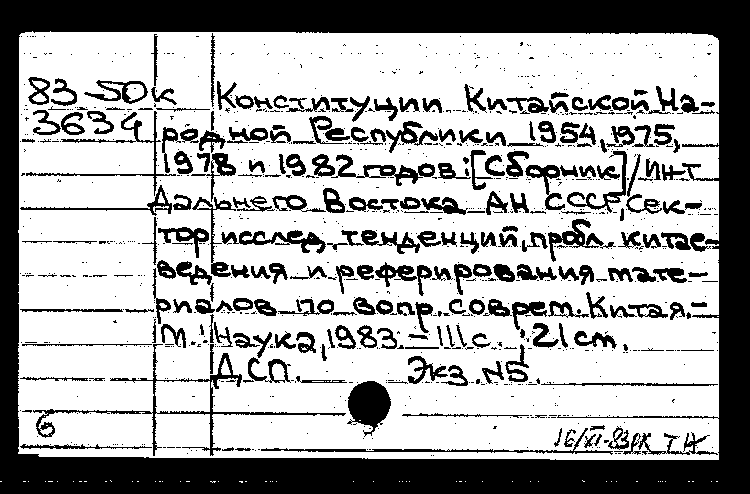 83-50к Конституции Китайской На-
3634 родной Республики 1954, 1975,
1978 и 1982 годов: [Сборник] / Ин-т
Дальнего Востока АН СССР, Сек-
тор исслед. тенденций, пробл. китае-
ведения и реферирования мате-
риалов по вопр. соврем. Китая.-
М.: Наука, 1983. - 111 с. ; 21 cm.
Д.С.П. Экз. №5.
6 16/XI-83